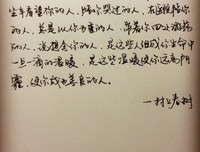 坐车看望你的人，陪你哭过的人，在医院陪你
的人，总是以你为重的人，带着你四处游荡
的人，说想念你的人，是这些人组成你生命中
一点一滴的温暖，是这些温暖使你远离阴
霾，使你成为善良的人。
—村上春树